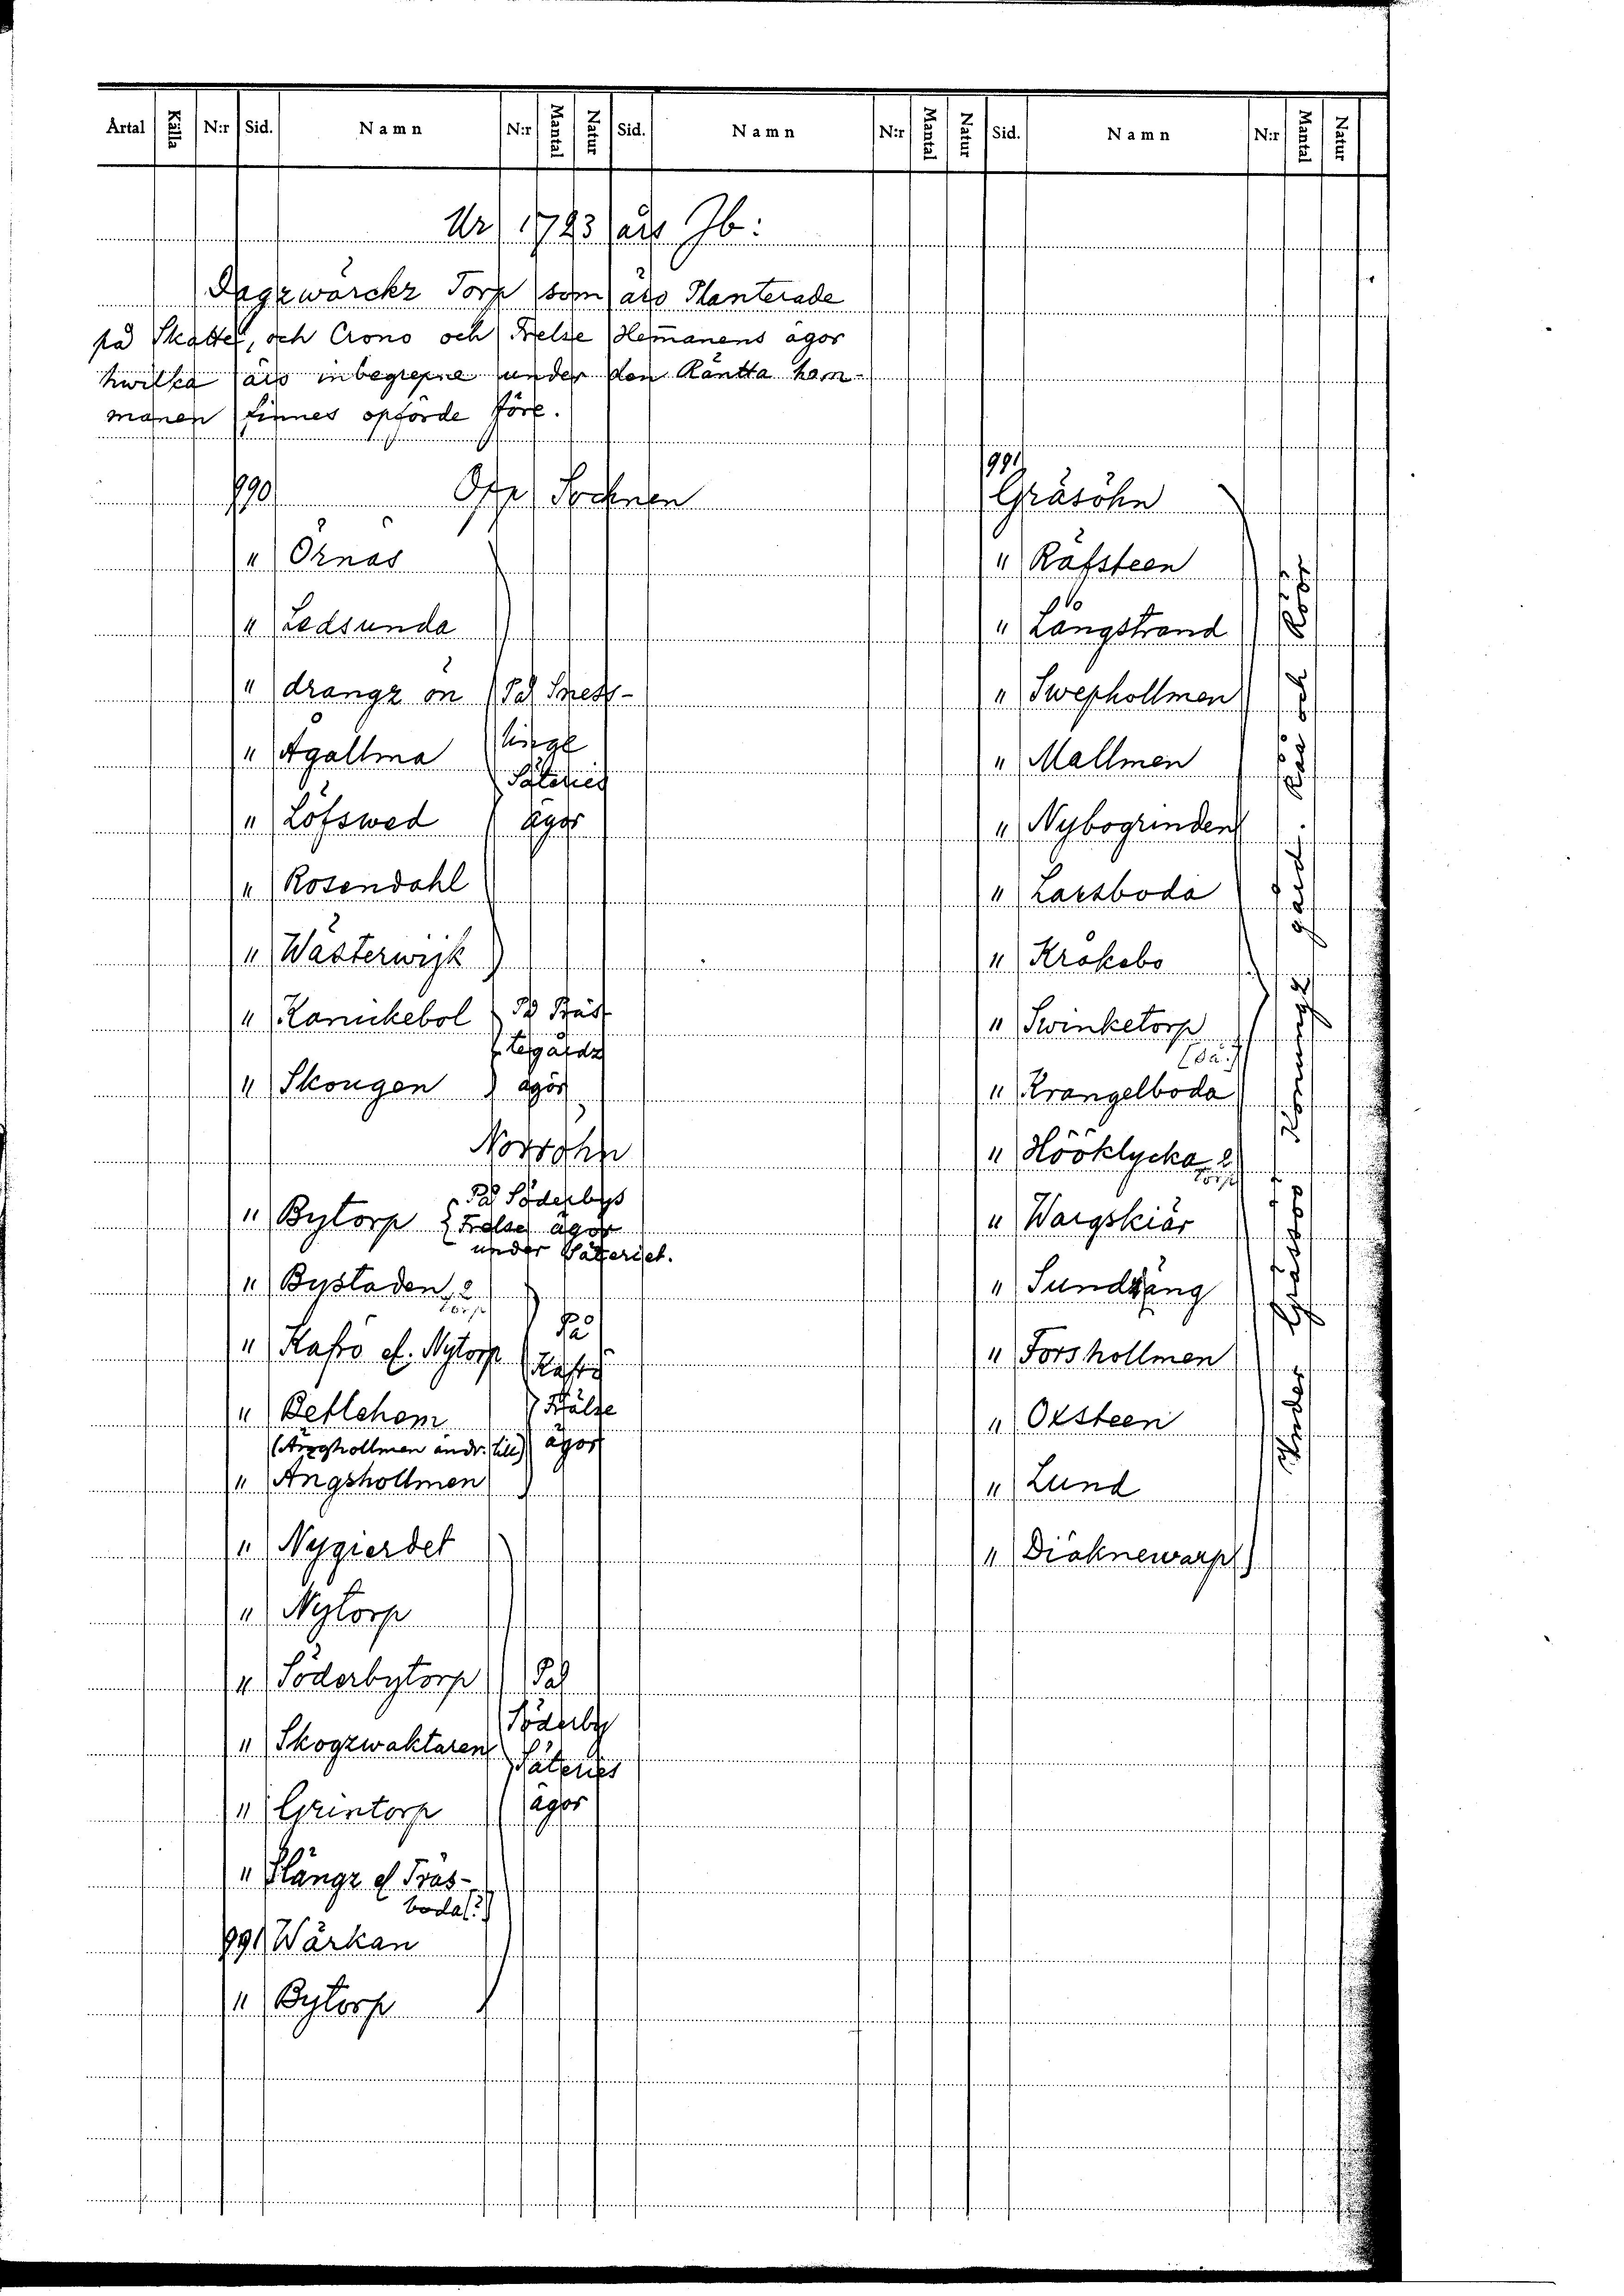 Årtal Källa N:r Sid. Namn N:r Mantal Natur Sid. Namn N:r Mantal Natur Sid. Namn N:r Mantal Natur
Ur 1723 års Jb:
Dagzwärckz Torp som äro Planterade
på Skatte, och Crono och Frelse Hem̅anens ägor
hwilka äro inbegrepne under den Räntta hem-
manen finnes opförde före.
990 Sochnen
" Örnäs
" Ledsunda
" drangz ön På Sness-
" Ågallma linge
Säteries
" Löfswed ägor
" Rosendahl
" Wästerwijk
" Kanickebol På Präs-
tegårdz
" Skougen ägor
Norröhn
" Bytorp På Söderbys
Frelse ägor
under Säteriet.
" Bystaden 2
torp
" Kafrö el. Nytorp På
Kafrö
" Betlehem Frälse
(Ängzhollmen ändr. till) ägor
" Ängshollmen
" Nygierdet
" Nytorp
" Söderbytorp På
Söderby
" Skogzwaktaren Säteries
" Grintorp ägor
" Slängz el Träs-
boda(?)
991 Wärkan
" Bytorp
991
Gräsöhn
" Räfsteen
" Långstrand
" Swephollmen
" Mallmen
" Nybogrinden
" Larsboda
" Kråkebo
" Swinketorp
" Krangelboda
" Hööklycka 2
torp
" Wargskiär
" Sundzäng
" Forshollmen
" Oxsteen
" Lund
" Diäknewarp
Under Gräsöö Konungz gård. Råå och Röör